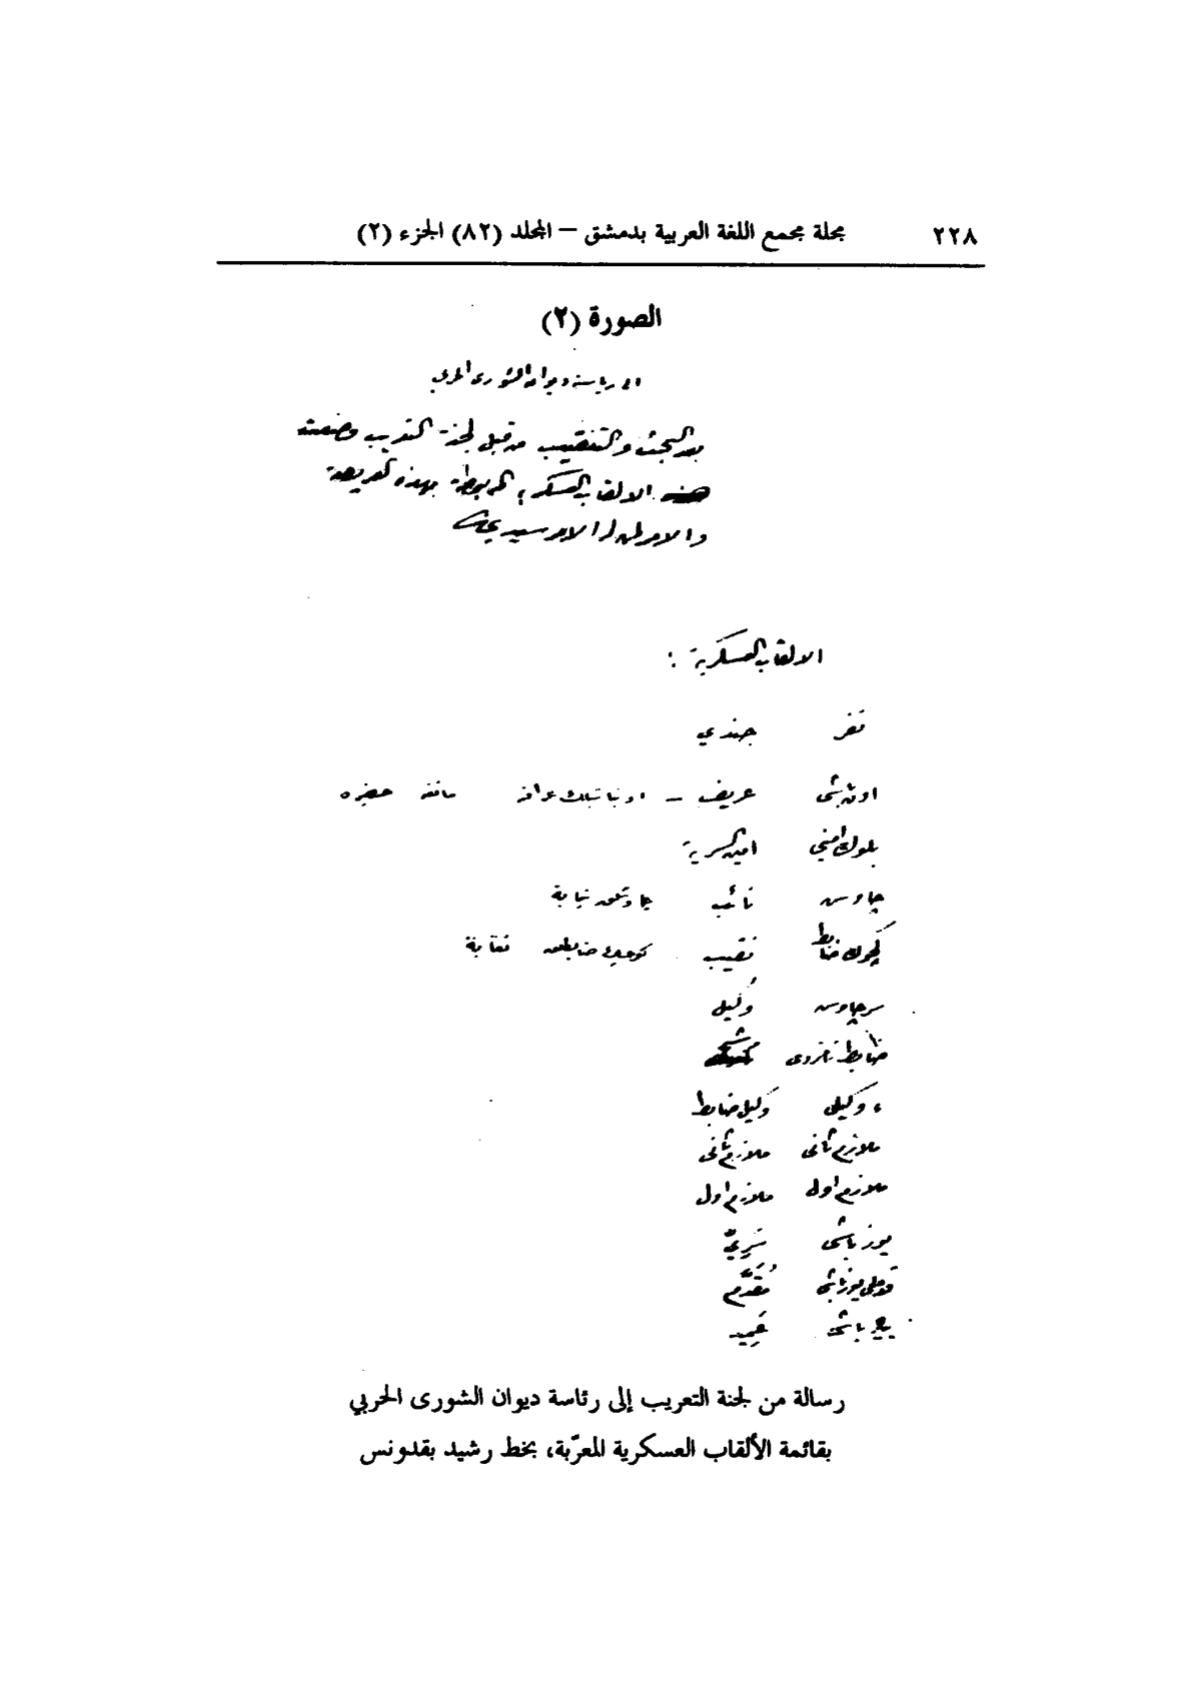 ٢٢٨ مجلة مجمع اللغة العربية بدمشق – المجلد (٨٢) الجزء (٢)
الصورة (٢)
الى رياسة ديوان الشورى الحربي
بعد البحث والتنقيب من قبل لجنة التعريب وضعت
هذه الالقاب العسكرية المربوطة بهذه العريضة
والامر لمن له الامر سيدي
الالقاب العسكرية :
نفر جندي
اونباشى عريف – اونباشيلك عرافة
بلوك امينى امين السرية
چاوش نائب نيابة
كوچك ضابط نقيب كوچك ضابطلق نقابة
سرچاوش وكيل
ضابط نامزدى
» وكيلى وكيل ضابط
ملازم ثانى ملازم ثانى
ملازم اول ملازم اول
يوزباشى سَرِيّ
قول اغاسى يوزباشى مُقَدَّم
بيكباشى عَمِيد
رسالة من لجنة التعريب إلى رئاسة ديوان الشورى الحربي
بقائمة الألقاب العسكرية المعرّبة، بخط رشيد بقدونس